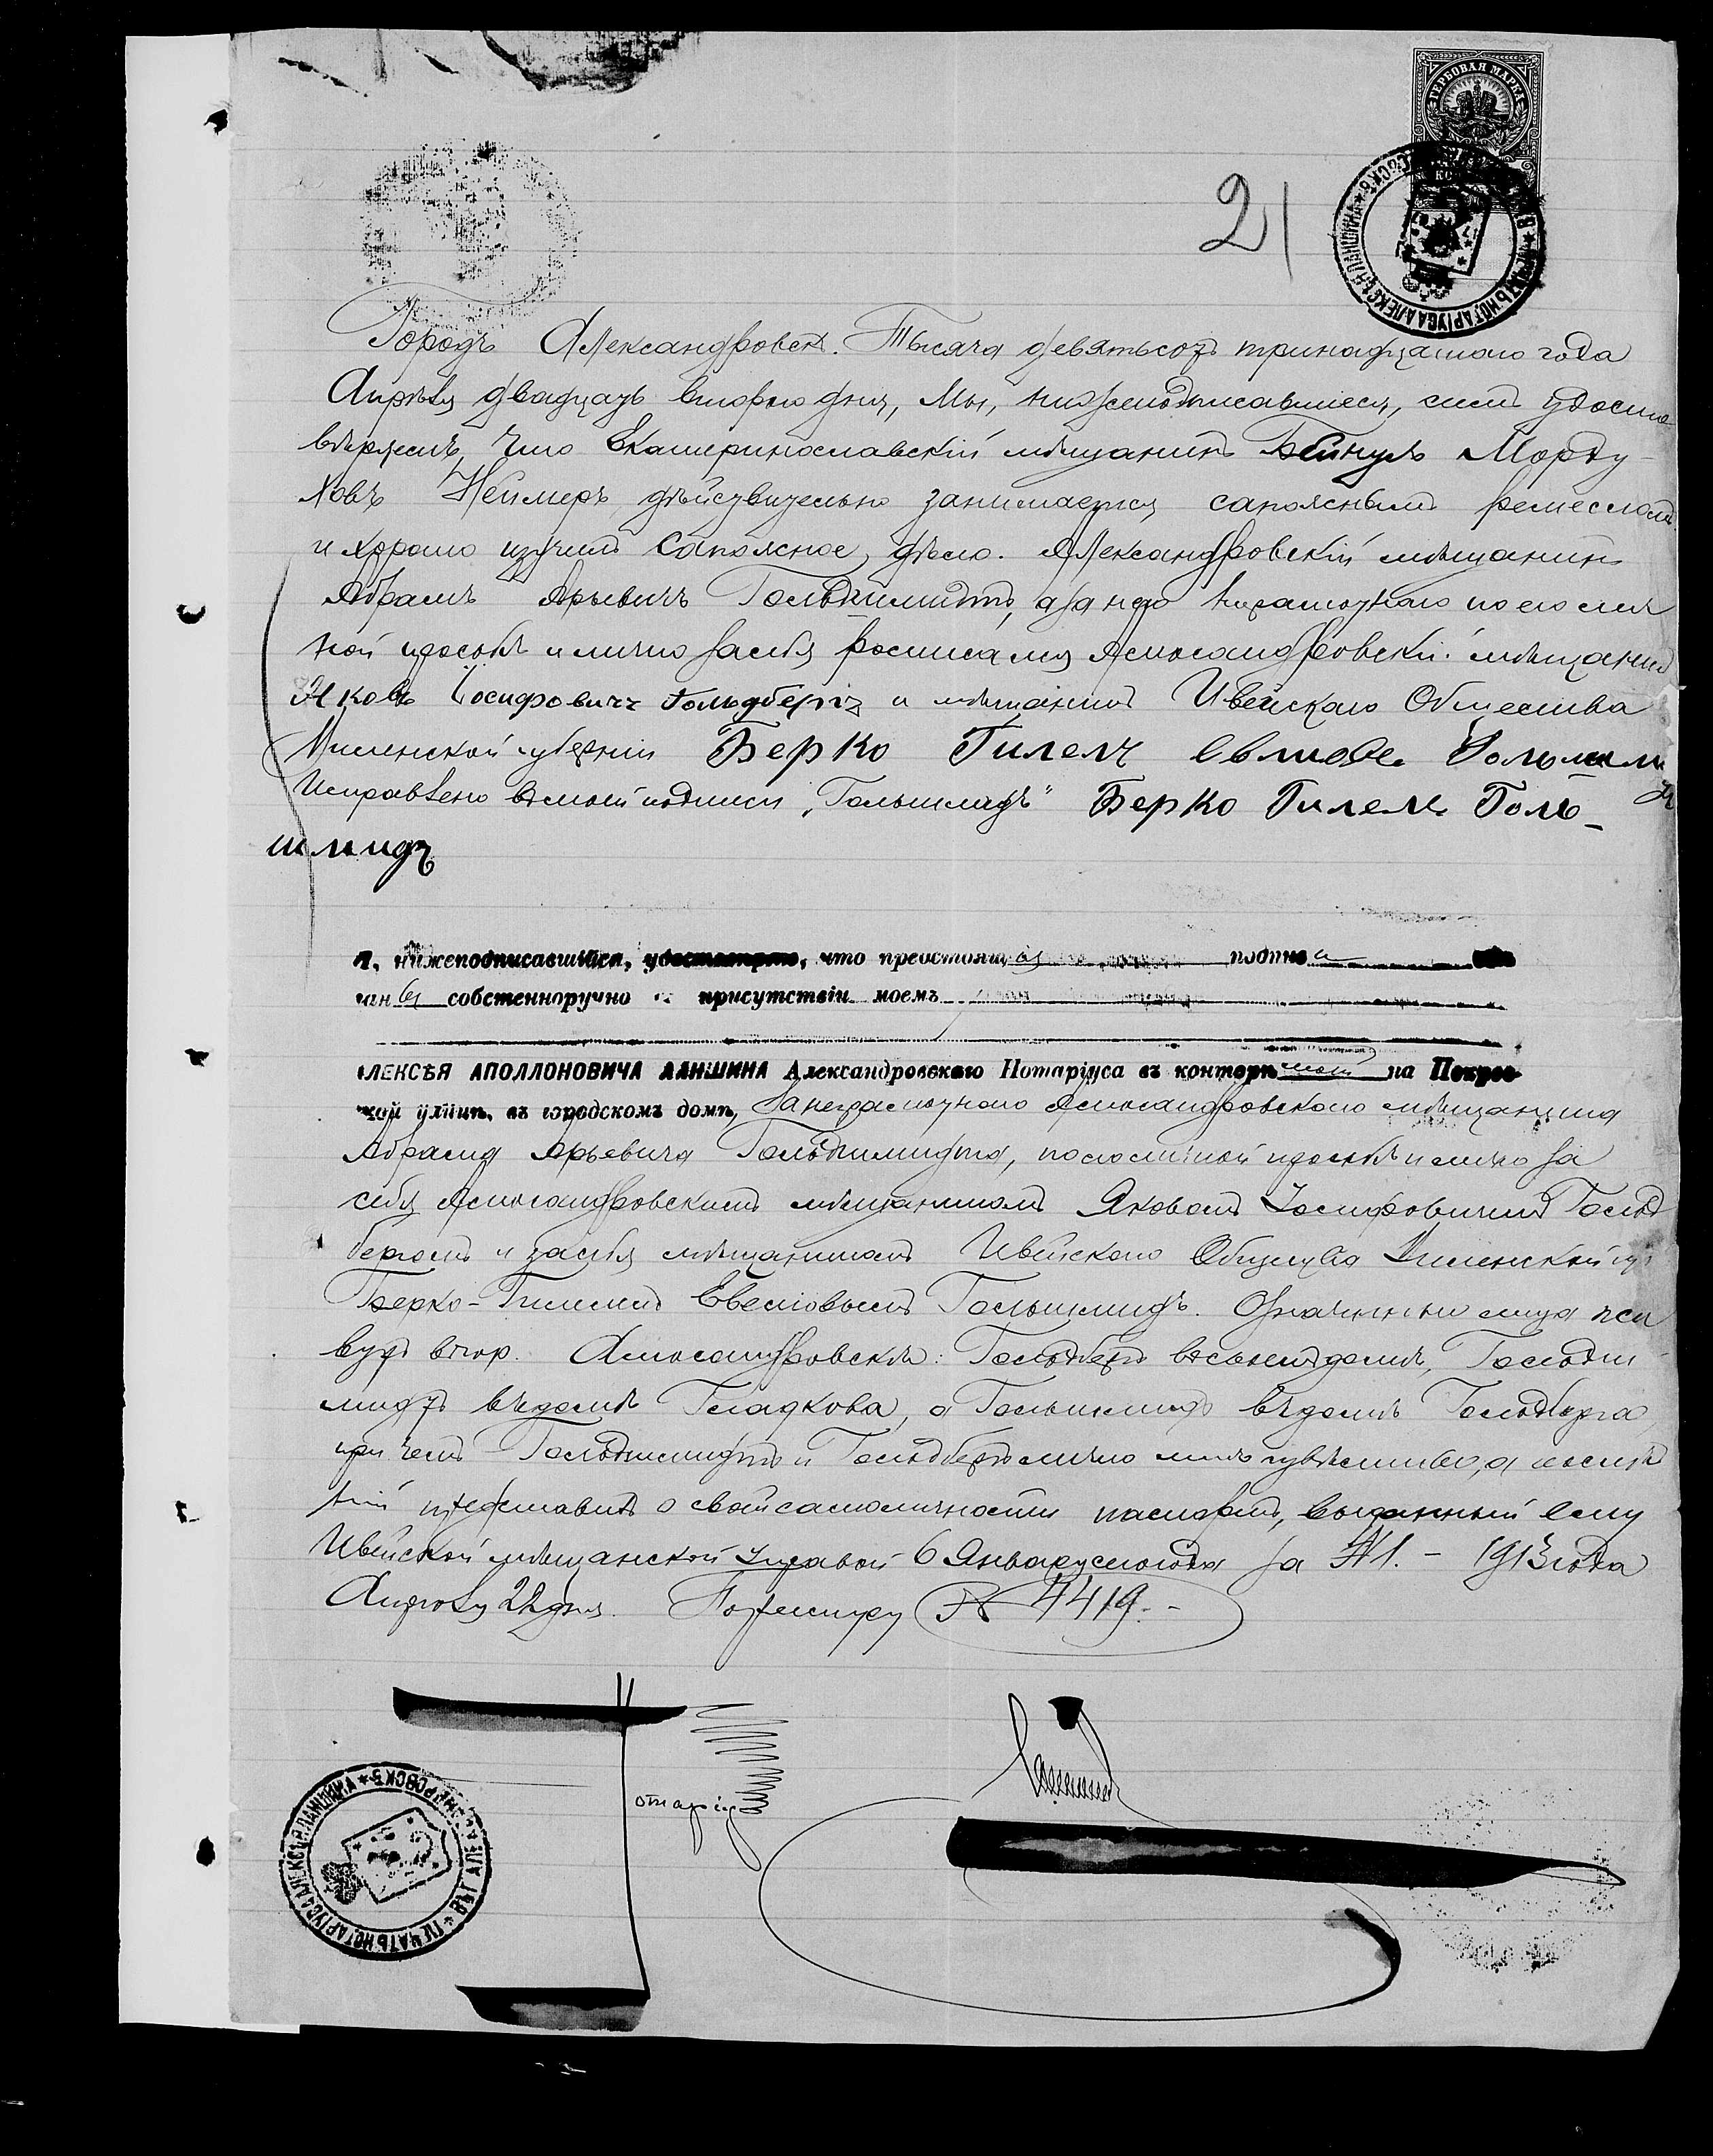 ГЕРБОВАЯ МАРКА
21
Городъ Александровск. Тысяча девятьсотъ тринадцатаго года
Апрѣля двадцать второго дня, Мы, нижеподписавшіеся, симъ удосто-
вѣряемъ, что Екатеринославскій мѣщанинъ Бейнусъ Морду-
ховъ Неймеръ дѣйствительно занимается сапожнымъ ремесломъ
и хорошо изучилъ сапожное дѣло. Александровскій мѣщанинъ
Абрамъ Арьевичъ Гольдшмидтъ, а за него неграмотнаго по его лич
ной просьбѣ и лично за себя росписался Александровскій мѣщанинъ
Яковъ Іосифовичъ Гольдбергъ и мѣщанинъ Ивейскаго Общества
Виленской губерніи Берко Гилелъ
Исправлено въ моей подписи „Гольшмидъ" Берко ГилельГоль-
шмидъ
Я, нижеподписавшійся, удостовѣряю, что предстоящая подпись
сдѣланы собственноручно въ присутствіи моемъ
АЛЕКСѢЯ АПОЛЛОНОВИЧА ЛАНШИНА Александровскаго Нотаріуса въ конторѣ моей на Покров
ской улицѣ, въ городскомъ домѣ, за неграмотнаго Александровскаго мѣщанина
Абрама Арьевича Гольдшмидта, по его личной просьбѣ и лично за
себя Александровскимъ мѣщаниномъ Яковомъ Іосифовичемъ Гольд
бергомъ и за себя мѣщаниномъ Ивейскаго Общества Виленской гу
Берко-Гилемъ Евелевымъ Гольшмидъ. Означенныя лица жи
вутъ въ гор. Александровскѣ: Гольдбергъ въ своемъ домѣ, Гольдш
мидтъ въ домѣ Гладкова, а Гольшмидъ въ домѣ Гольдберга,
при чемъ Гольдшмидтъ и Гольдбергъ лично мнѣ извѣстны, а послѣд
ній представилъ о своей самоличности паспортъ, выданный ему
Ивейской мѣщанской Управой 6 Января сего года за №1. - 1913 года
Апрѣля 22 дня. По реестру № 4419.-
Нотаріусъ Ланшинъ